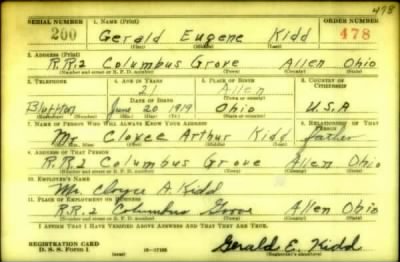 478
SERIAL NUMBER 1. NAME (Print) ORDER NUMBER
200 Gerald Eugene Kidd 478
(First) (Middle) (Last)
2. ADDRESS (Print)
R.R.2 Columbus Grove Allen Ohio
(Number and street or R. F. D. number) (Town) (County) (State)
3. TELEPHONE 4. AGE IN YEARS 5. PLACE OF BIRTH 6. COUNTRY OF CITIZENSHIP
21 Allen
Bluffton DATE OF BIRTH
June 20 1919 Ohio U.S.A
(Exchange) (Number) (Mo.) (Day) (Yr.) (State or country)
7. NAME OF PERSON WHO WILL ALWAYS KNOW YOUR ADDRESS 8. RELATIONSHIP OF THAT PERSON
Mr. Cloyce Arthur Kidd father
(Mr., Mrs., Miss) (First) (Middle) (Last)
9. ADDRESS OF THAT PERSON
R.R.2 Columbus Grove Allen Ohio
(Number and street or R. F. D. number) (Town) (County) (State)
10. EMPLOYER'S NAME
Mr. Cloyce A. Kidd
11. PLACE OF EMPLOYMENT OR BUSINESS
R.R.2 Columbus Grove Allen Ohio
(Number and street or R. F. D. number) (Town) (County) (State)
I AFFIRM THAT I HAVE VERIFIED ABOVE ANSWERS AND THAT THEY ARE TRUE.
REGISTRATION CARD
D. S. S. Form 1 Gerald E. Kidd
(Registrant's signature)